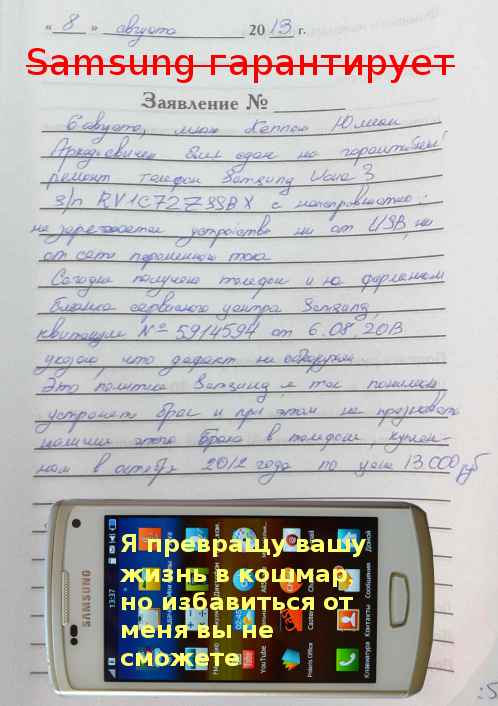 « 8 » августа 20 13 г.
Samsung гарантирует
Заявление №
6 августа, мною Каппом Юлием
Аркадьевичем был сдан на гарантийный
ремонт телефон Samsung Wave 3
з/п RV1C727398X с неисправностью:
не заряжается устройство ни от USB, ни
от сети переменного тока
Сегодня получаю телефон и на фирменном
бланке сервисного центра Samsung,
квитанция № 5914594 от 6.08.2013
указано, что дефект не обнаружен
Это политика Samsung, я так понимаю
устранять брак и при этом не признавать
наличие этого брака в телефоне, куплен-
ном в октябре 2012 года по цене 13.000 руб
SAMSUNG
13:37
Я превращу вашу
жизнь в кошмар,
но избавиться от
меня вы не
сможете
YouTube
Polaris Office
Клавиатура
Контакты
Сообщения
Домой